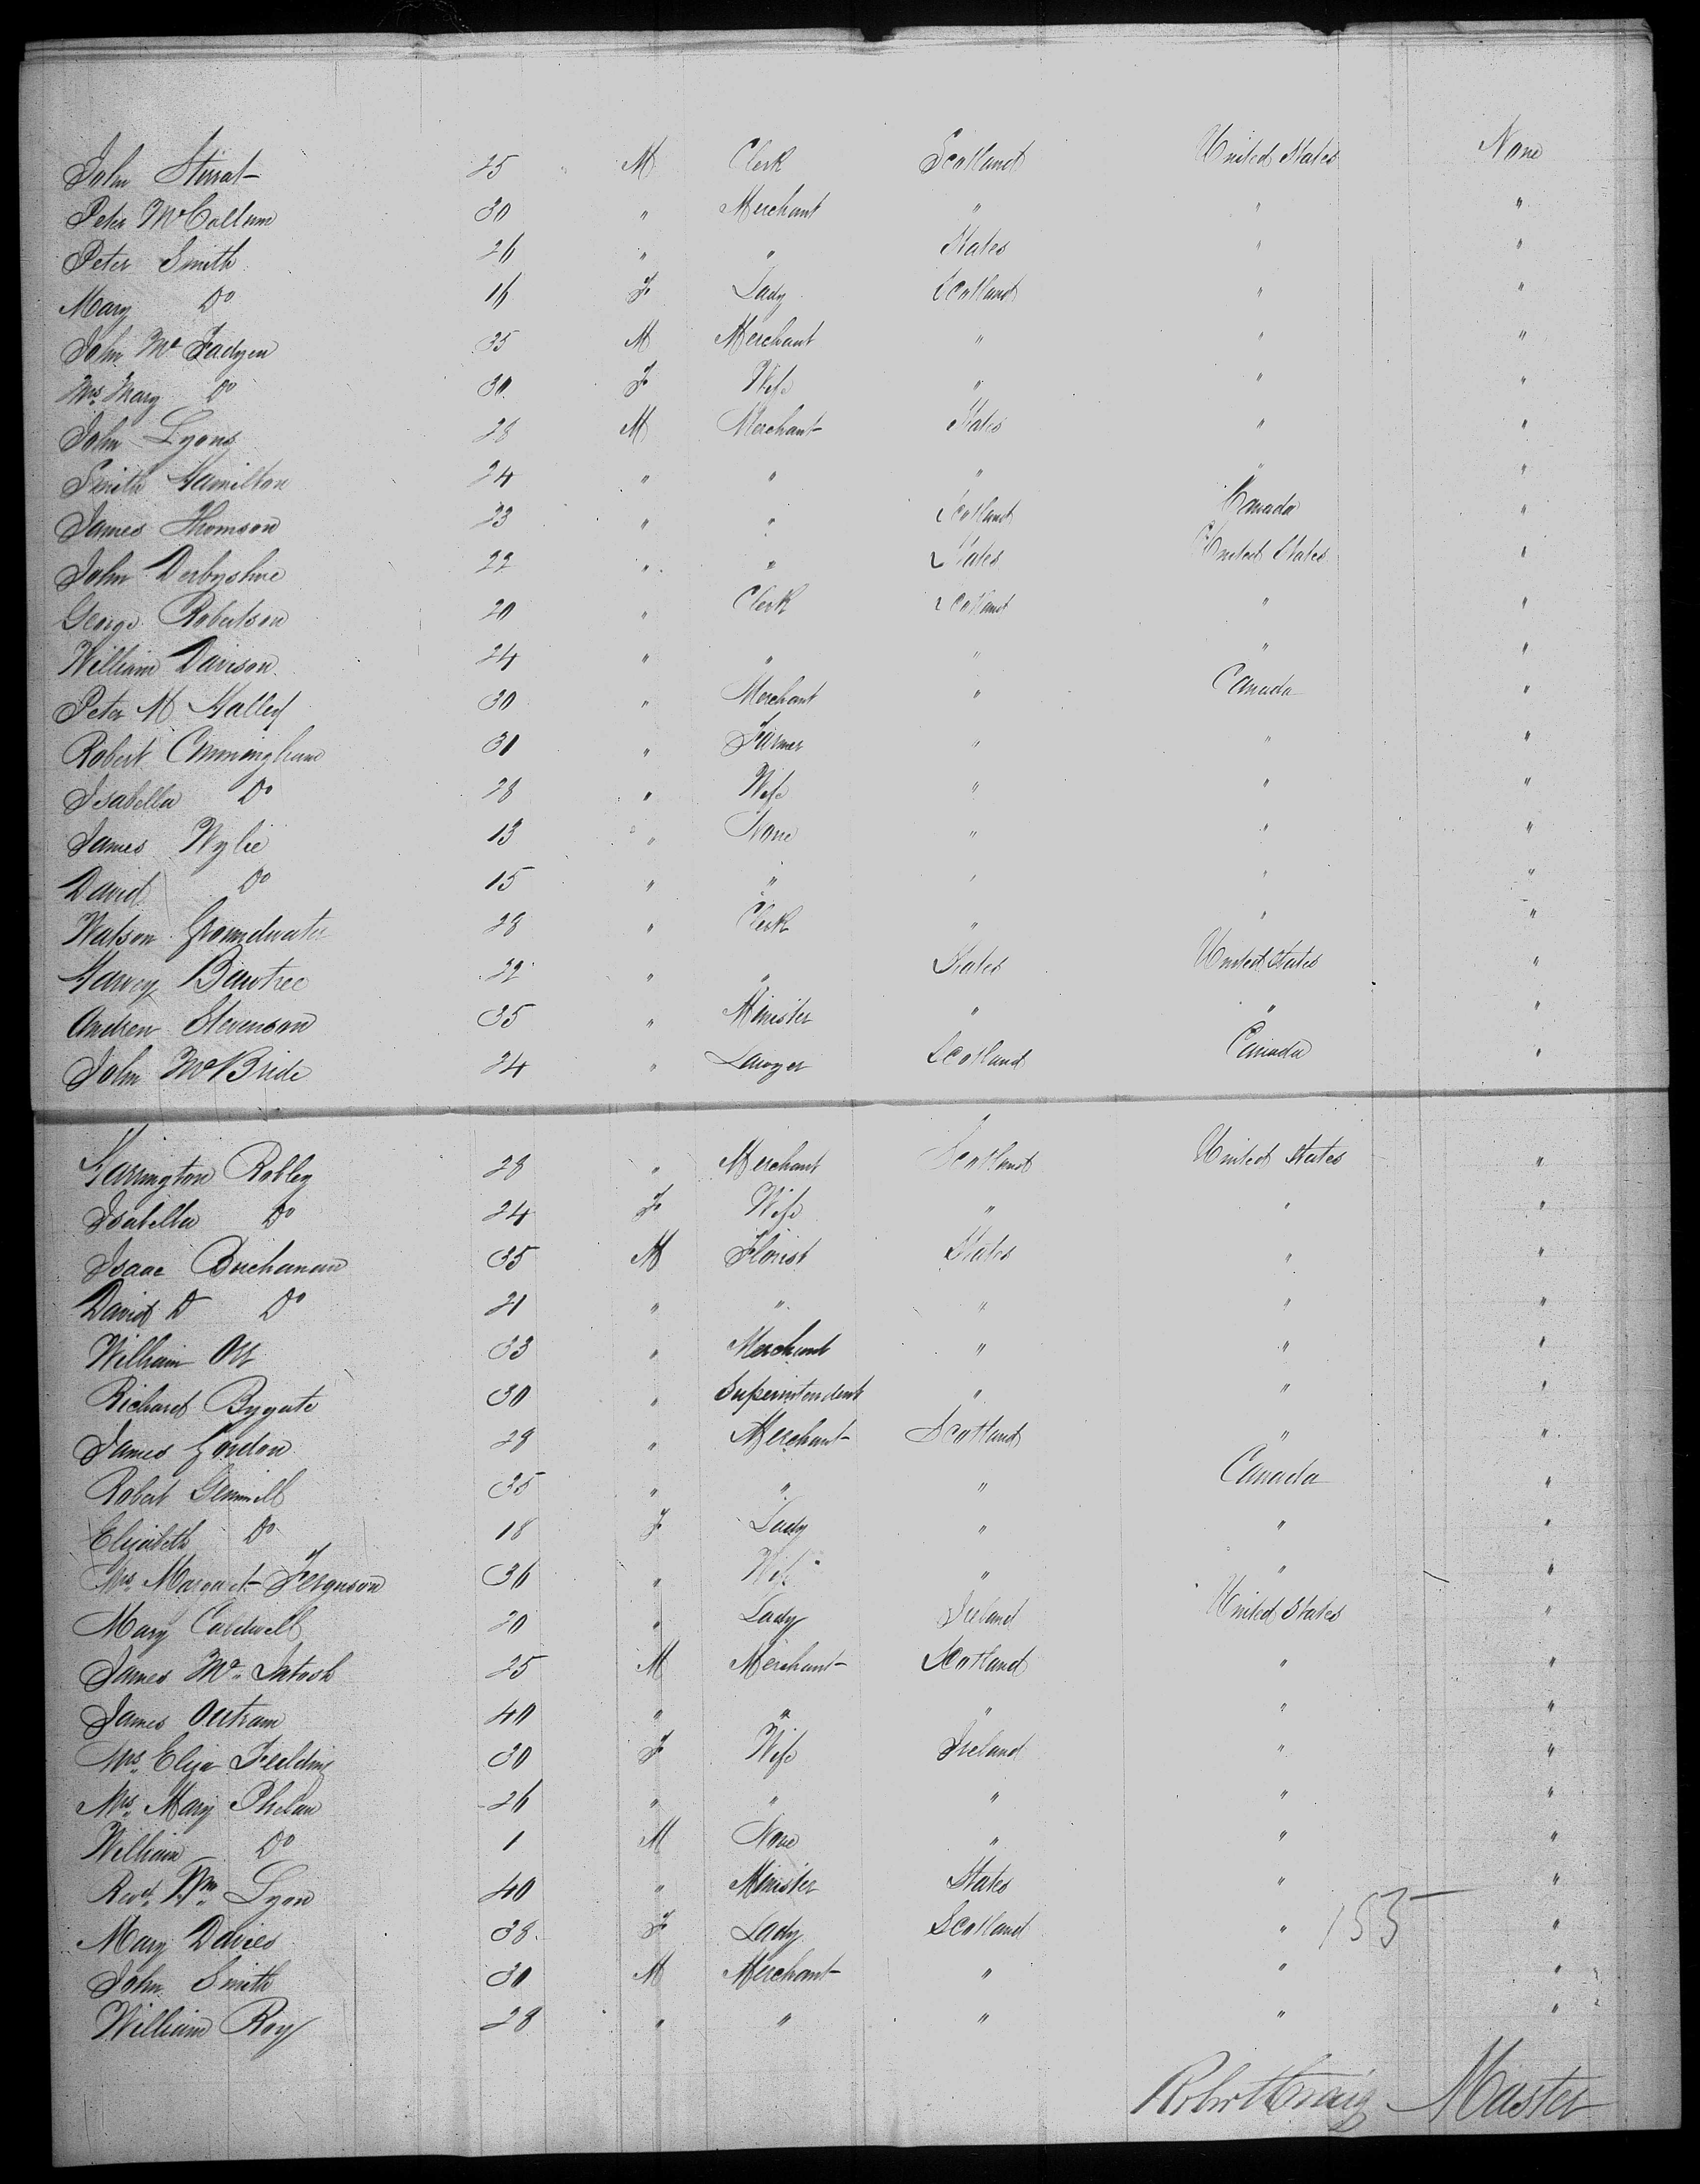 John Stirrat 25 M Clerk Scotland United States None
Peter McCollum 30 " Merchant " " "
Peter Smith 26 " " States " "
Mary Do 16 F Lady Scotland " "
John Mc Fadyen 35 M Merchant " " "
Mrs Mary Do 30 F Wife " " "
John Lyons 28 M Merchant States " "
Smith Hamilton 24 " " " " "
James Thomson 23 " " Scotland Canada "
John Derbyshire 22 " " States United States "
George Robertson 20 " Clerk Scotland " "
William Davison 24 " " " " "
Peter M Halley 30 " Merchant " Canada "
Robert Cunningham 31 " Farmer " " "
Isabella Do 28 " Wife " " "
James Wylie 13 " None " " "
David Do 15 " " " " "
Watson Groundwater 28 " Clerk " " "
Harvey Bawtree 32 " " States United States "
Andrew Stevenson 35 " Minister " " "
John McBride 24 " Lawyer Scotland Canada "
Harrington Robley 28 " Merchant Scotland United States "
Isabella Do 24 F Wife " " "
Isaac Buchanan 35 M Florist States " "
David D Do 21 " " " " "
William Orr 33 " Merchant " " "
Richard Bygate 30 " Superintendent " " "
James Gordon 28 " Merchant Scotland " "
Robert Gemmill 35 " " " Canada "
Elizabeth Do 18 F Lady " " "
Mrs Margaret Ferguson 36 " Wife " " "
Mary Caldwell 20 " Lady Ireland United States "
James Mc Intosh 25 M Merchant Scotland " "
James Outram 40 " " " " "
Mrs Eliza Feilding 30 F Wife Ireland " "
Mrs Mary Phelan 26 " " " " "
William Do 1 M None " " "
Revd Wm Lyon 40 " Minister States " "
Mary Davies 38 F Lady Scotland " 155 "
John Smith 30 M Merchant " " "
William Roy 28 " " " " "
Robert Craig Master